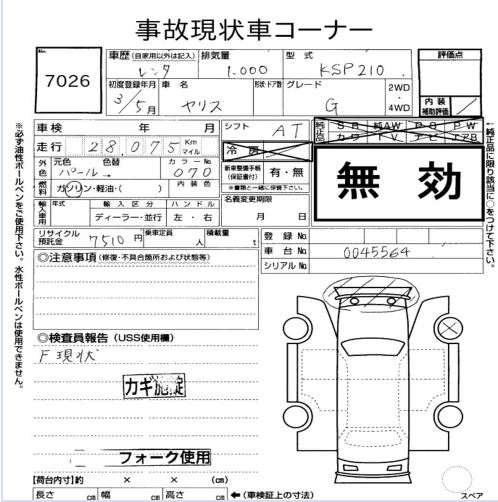 事故現状車コーナー
No.
7026
車歴 (自家用以外は記入)
レンタ
排気量
1.000
型式
KSP210
評価点
初度登録年月
3/5月
車名
ヤリス
形状・ドア数
グレード
G
2WD
4WD
内装
補助評価
車検 年 月
シフト
AT
純正品
SR 純AW PS PW
カワ TV ナビ エアB
走行
28,075
Km
マイル
冷房
外色
元色 色替
パール→
カラーNo.
070
新車整備手帳
(保証書付)
有・無
※書類と一緒に保管下さい。
無効
燃料
ガソリン・軽油・( )
内装色
輸入車用
年式
輸入区分
ディーラー・並行
ハンドル
左・右
名義変更期限
月 日
リサイクル
預託金
7510円
乗車定員
人
積載量
t
登録No.
車台No.
0045564
シリアルNo.
◎注意事項 (修復・不具合箇所および状態等)
◎検査員報告 (USS使用欄)
F現状
カギ施錠
フォーク使用
【荷台内寸】約 × × (cm)
長さ cm 幅 cm 高さ cm ←(車検証上の寸法)
スペア
※必ず油性ボールペンをご使用下さい。水性ボールペンは使用できません。
←純正品に限り該当に○をつけて下さい。